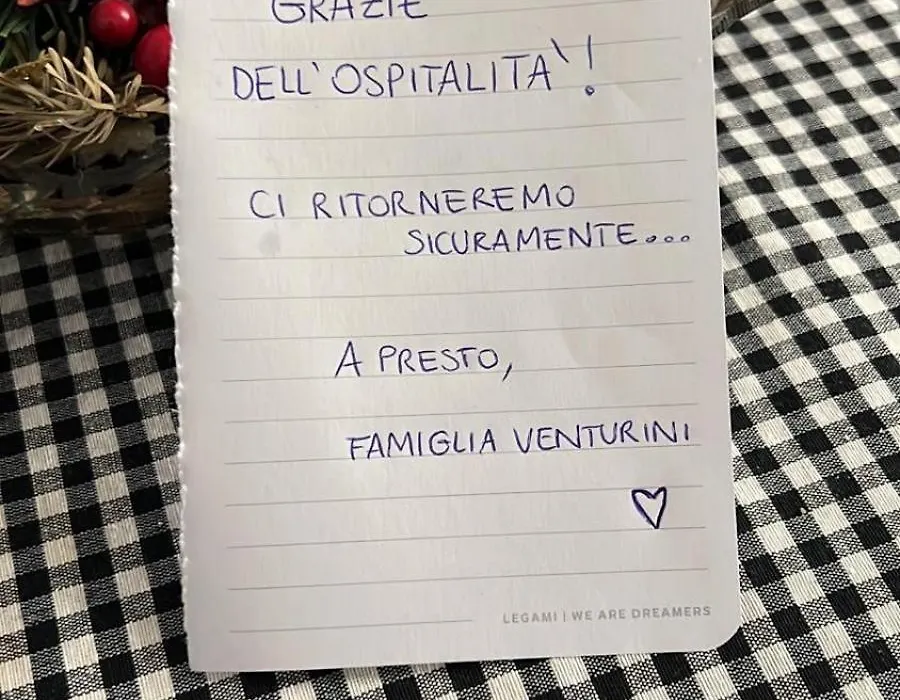 GRAZIE
DELL'OSPITALITA'!
CI RITORNEREMO
SICURAMENTE...
A PRESTO,
FAMIGLIA VENTURINI
LEGAMI | WE ARE DREAMERS